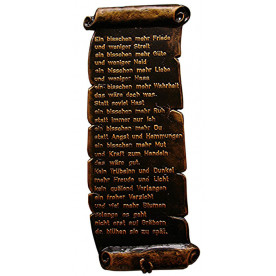 Ein bisschen mehr Friede
und weniger Streit
ein bisschen mehr Güte
und weniger Neid
ein bisschen mehr Liebe
und weniger Hass
ein bisschen mehr Wahrheit
das wäre doch was.
Statt soviel Hast
ein bisschen mehr Ruh
statt immer nur ich
ein bisschen mehr Du
statt Angst und Hemmungen
ein bisschen mehr Mut
und Kraft zum Handeln
das wäre gut.
Kein Trübsinn und Dunkel
mehr Freude und Licht
kein Verlangen
ein froher Verzicht
und viel mehr Blumen
solange es geht
nicht erst auf Gräbern
da blühen sie zu spät.